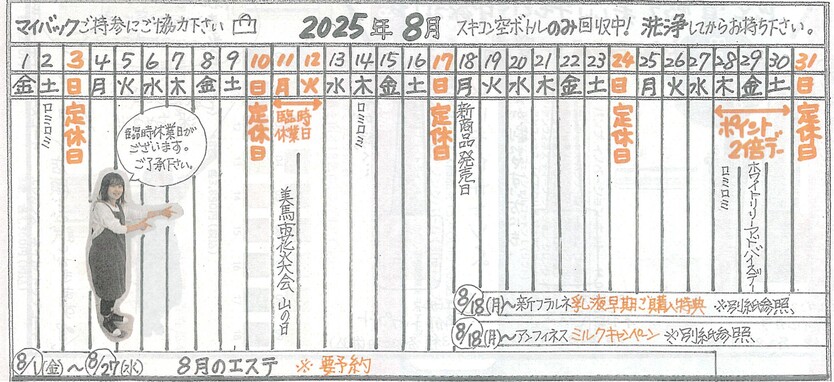 マイバックご持参にご協力下さい
2025年 8月
スキコン空ボトルのみ回収中! 洗浄してからお持ち下さい。
1 2 3 4 5 6 7 8 9 10 11 12 13 14 15 16 17 18 19 20 21 22 23 24 25 26 27 28 29 30 31
金 土 日 月 火 水 木 金 土 日 月 火 水 木 金 土 日 月 火 水 木 金 土 日 月 火 水 木 金 土 日
ロミロミ
定休日
臨時休業日が
ございます。
ご了承下さい。
定休日
臨時
休業日
美馬市花火大会 山の日
ロミロミ
定休日
新商品発売日
定休日
ポイント
2倍デー
ロミロミ
ホワイトリリーアドバイスデー
定休日
8/18(月)~新フラルネ乳液早期ご購入特典 ※別紙参照、
8/18(月)~アンフィネスミルクキャンペーン ※別紙参照、
8/1(金)~8/27(水) 8月のエステ ※要予約